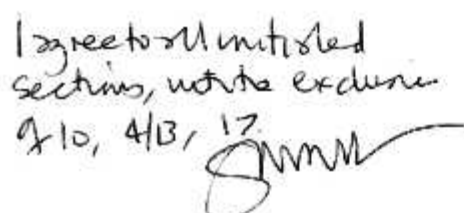 I agree to all initialed
sections, with the exclusion
of 10, 4/13, 17.